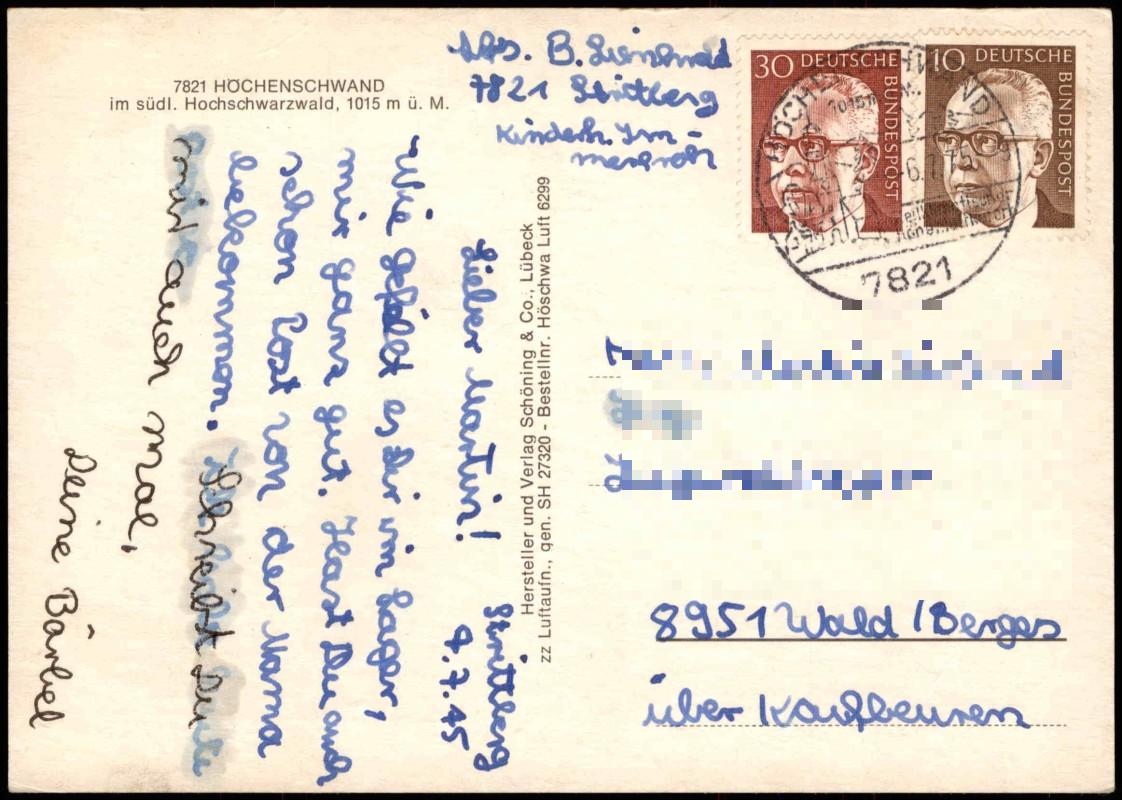 7821 HÖCHENSCHWAND
im südl. Hochschwarzwald, 1015 m ü. M.
Abs. B.
7821 Strittberg
Kinderh. Im-
30 DEUTSCHE BUNDESPOST
10 DEUTSCHE BUNDESPOST
7821
Strittberg
Lieber Martin!
Wie gefällt es Dir im Lager,
mir ganz gut. Hast Du auch
schon Post von der Mama
bekommen. Schreibt Du
mir auch mal,
Deine Bärbel
Hersteller und Verlag Schöning & Co., Lübeck
zz Luftaufn., gen. SH 27320 - Bestellnr. Höschwa Luft 6299
8951 Wald / Berges
über Kaufbeuren